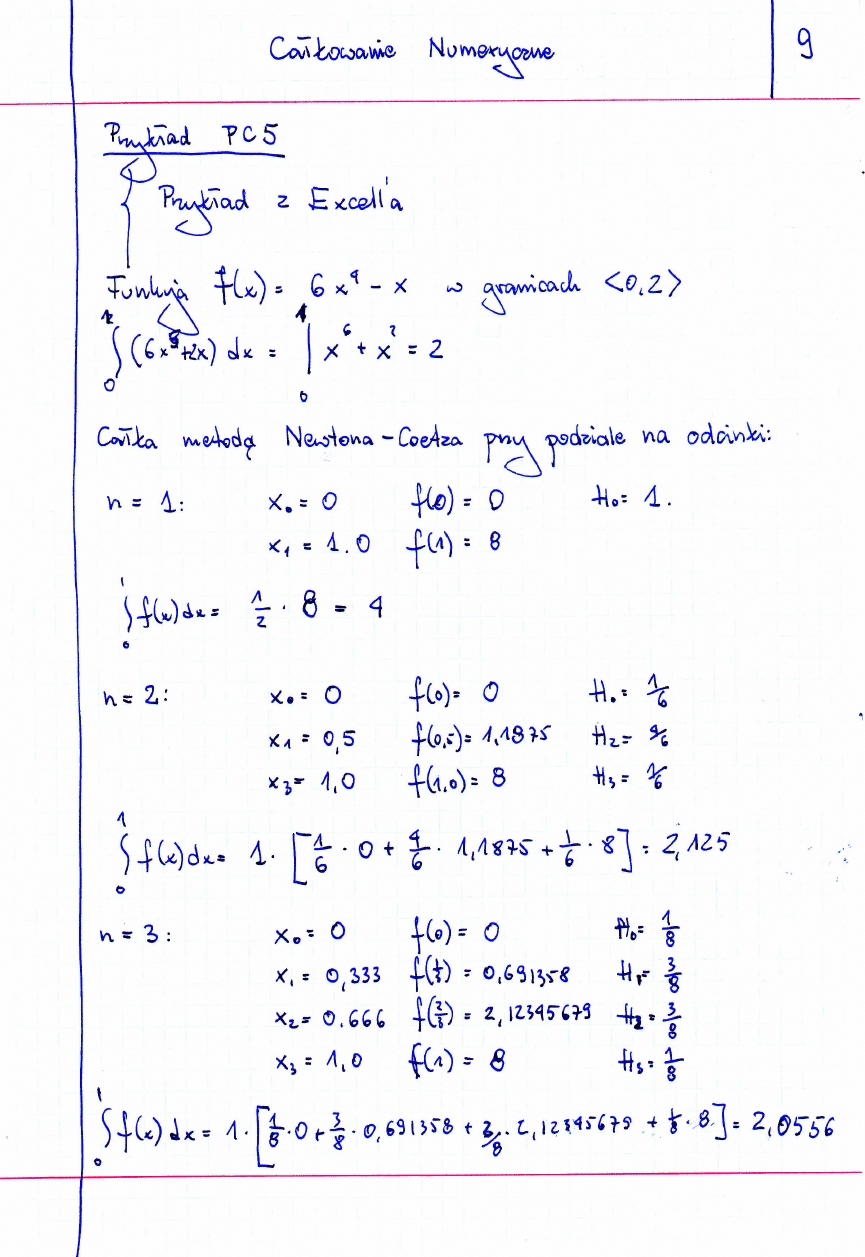 Całkowanie Numeryczne 9
Przykład PC5
Przykład z Excell'a
Funkcja f(x) = 6x⁴ - x w granicach <0,2>
∫₀¹ (6x⁵+2x) dx = |₀¹ x⁶ + x² = 2
Całka metodą Newtona-Coetza przy podziale na odcinki:
n = 1: x₀ = 0 f(0) = 0 H₀ = 1.
x₁ = 1.0 f(1) = 8
∫₀¹ f(x) dx = 1/2 · 8 = 4
n = 2: x₀ = 0 f(0) = 0 H₀ = 1/6
x₁ = 0,5 f(0,5) = 1,1875 H₂ = 4/6
x₃ = 1,0 f(1.0) = 8 H₃ = 1/6
∫₀¹ f(x) dx = 1 · [1/6 · 0 + 4/6 · 1,1875 + 1/6 · 8] = 2,125
n = 3: x₀ = 0 f(0) = 0 H₀ = 1/8
x₁ = 0,333 f(1/3) = 0,691358 H₁ = 3/8
x₂ = 0.666 f(2/3) = 2,12345679 H₂ = 3/8
x₃ = 1,0 f(1) = 8 H₃ = 1/8
∫₀¹ f(x) dx = 1 · [1/8 · 0 + 3/8 · 0,691358 + 3/8 · 2,12345679 + 1/8 · 8] = 2,0556